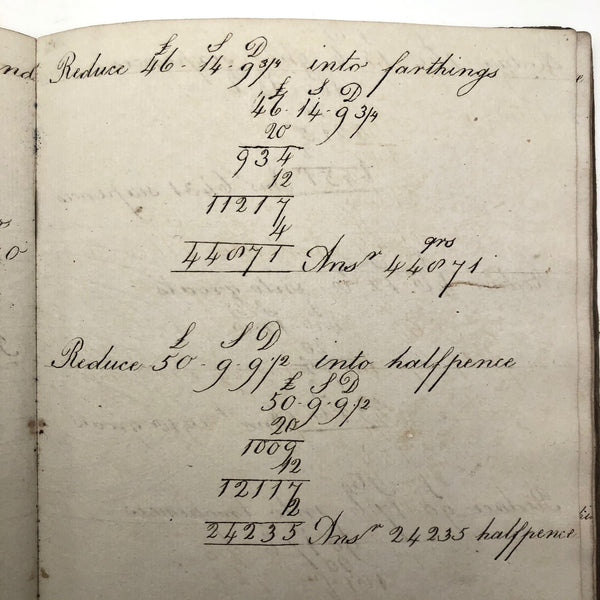 nd
£ S D
Reduce 46 - 14 - 9 3/4 into farthings
£ S D
46 - 14 - 9 3/4
20
934
12
11217
4
qrs
44871 Ansr 44871
0
£ S D
Reduce 50 - 9 - 9 1/2 into halfpence
£ S D
50 - 9 - 9 1/2
20
1009
12
12117
2
24235 Ansr 24235 halfpence